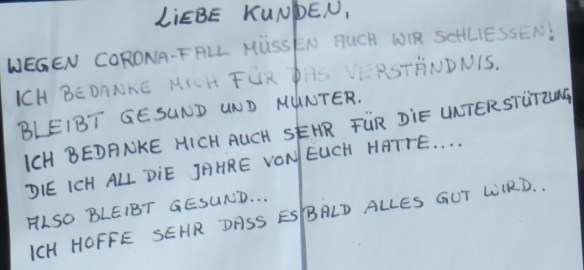 LIEBE KUNDEN,
WEGEN CORONA-FALL MÜSSEN AUCH WIR SCHLIESSEN!
ICH BEDANKE MICH FÜR DAS VERSTÄNDNIS.
BLEIBT GESUND UND MUNTER.
ICH BEDANKE MICH AUCH SEHR FÜR DIE UNTERSTÜTZUNG
DIE ICH ALL DIE JAHRE VON EUCH HATTE....
ALSO BLEIBT GESUND...
ICH HOFFE SEHR DASS ES BALD ALLES GUT WIRD..